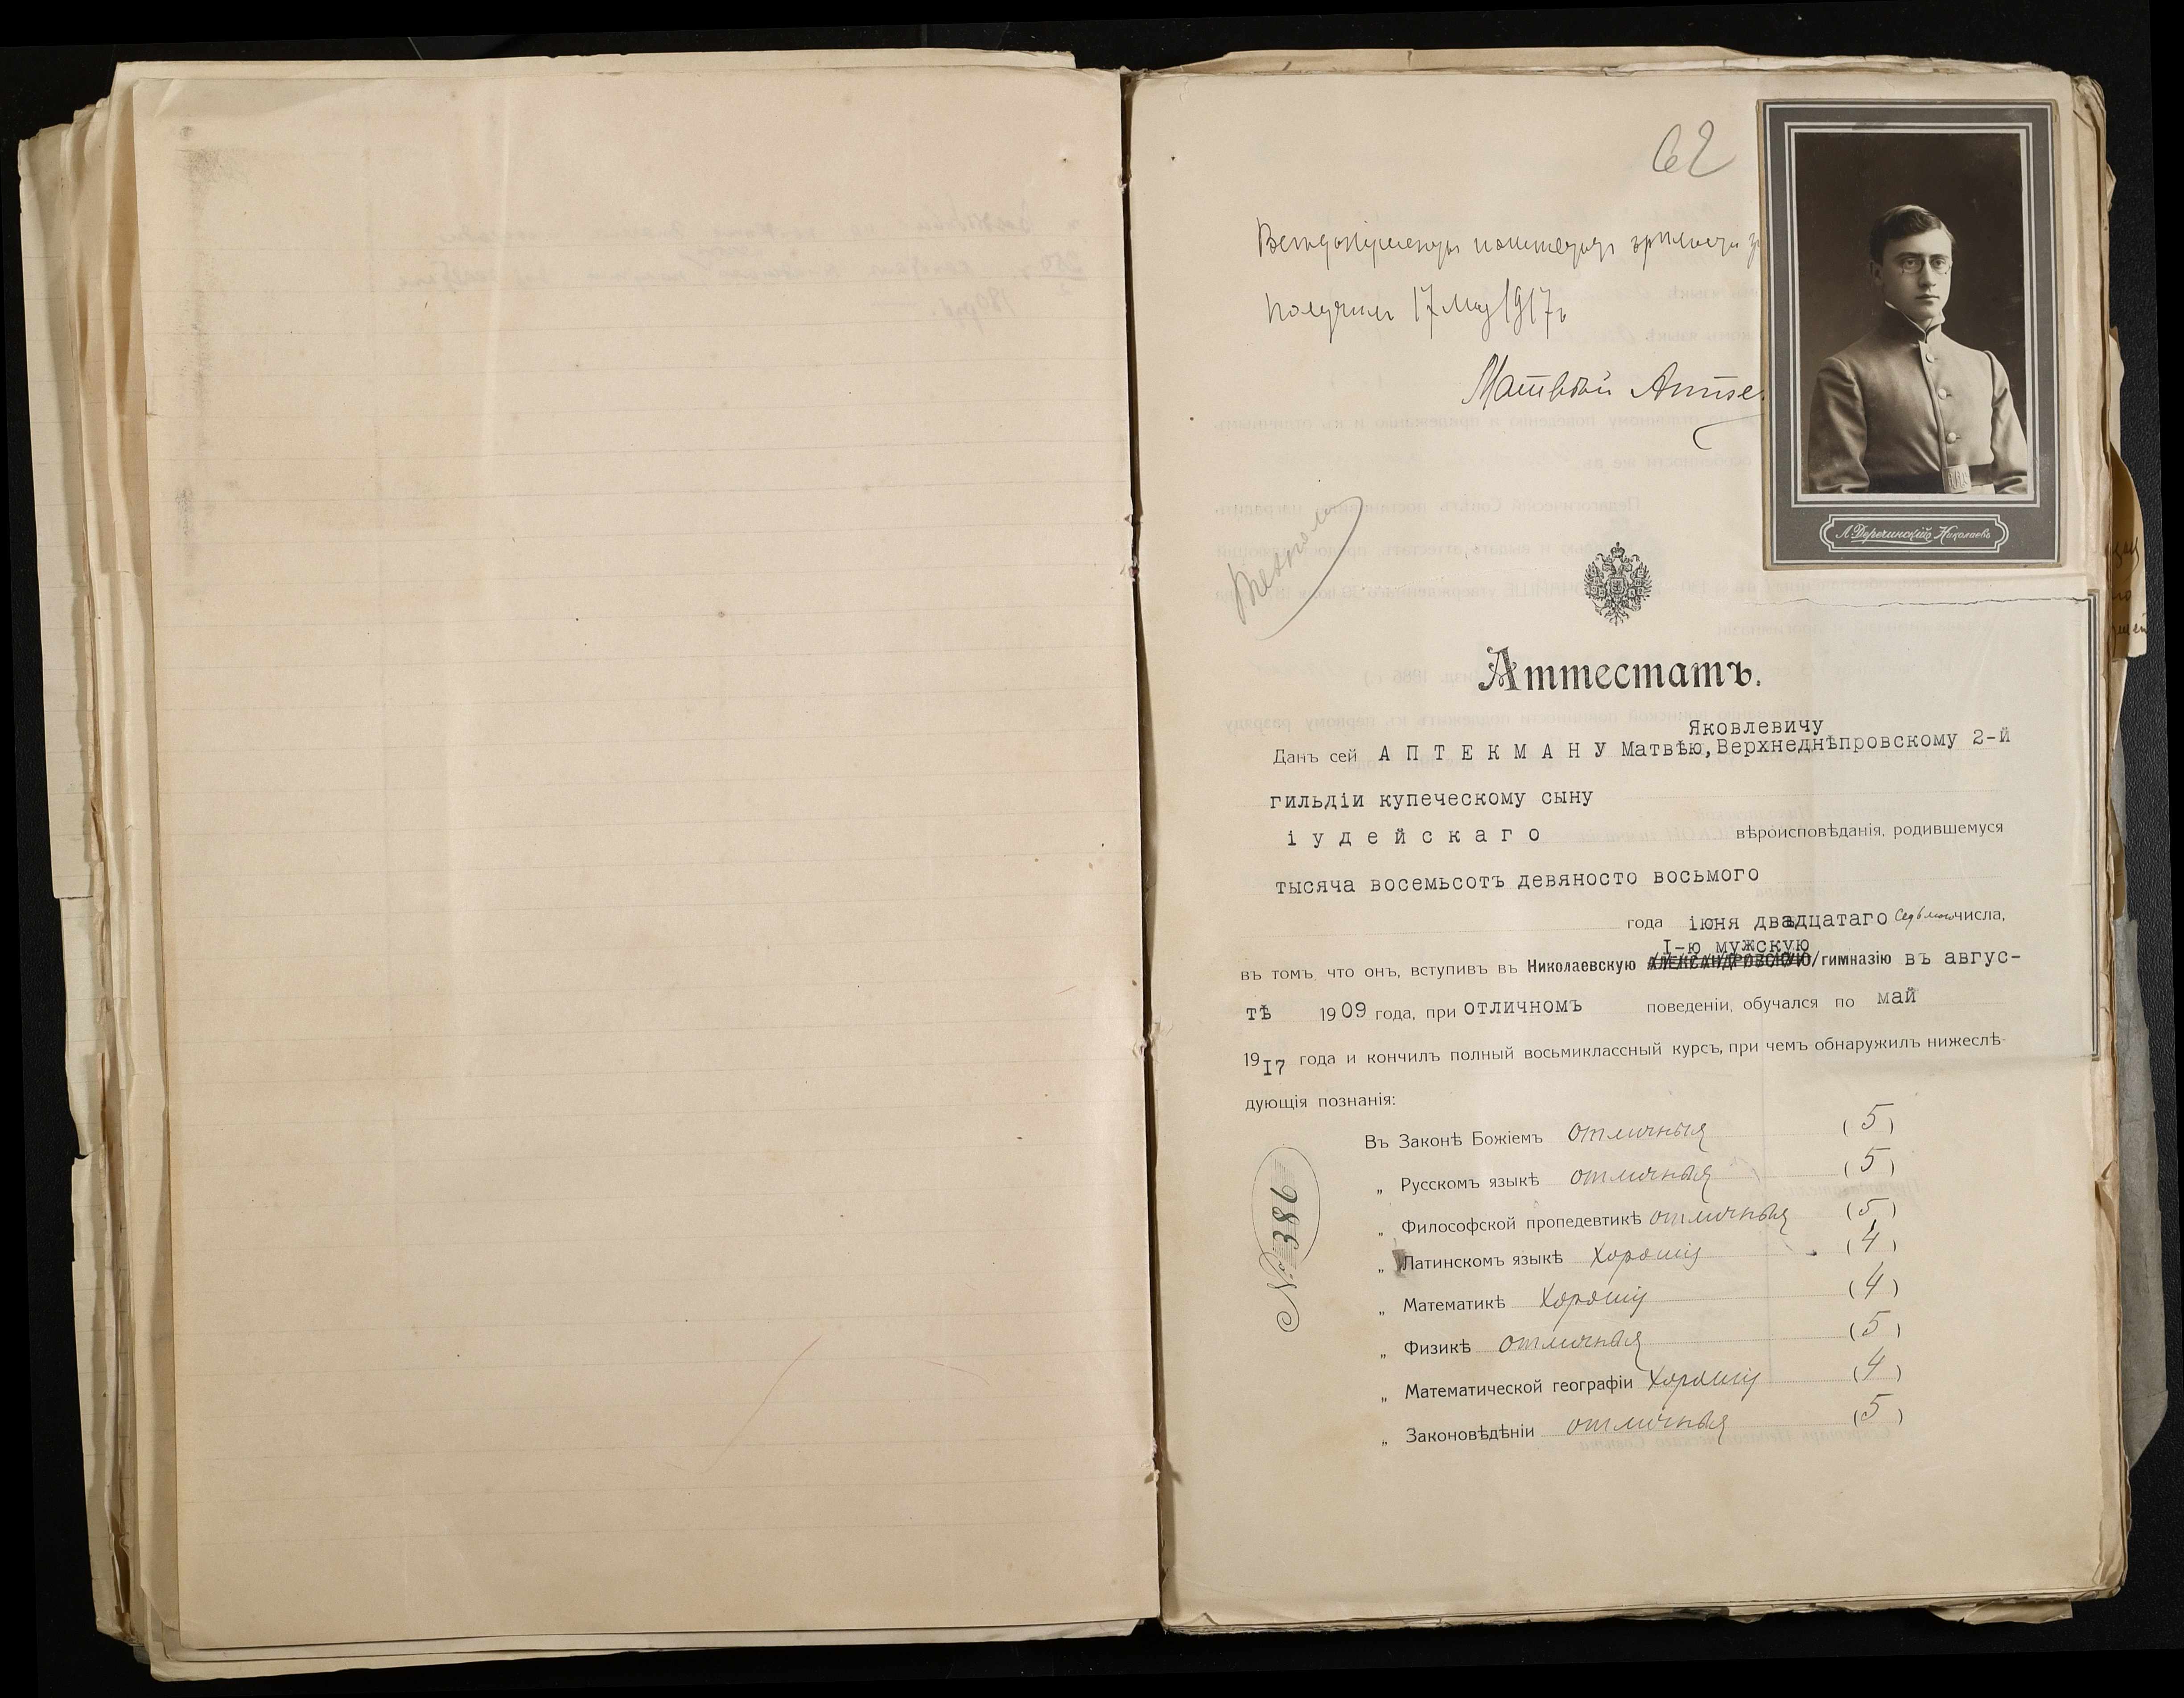 62
получилъ 17 Мая 1917 г.
Матвѣй Аптек
А. Деречинскій Николаевъ
Аттестатъ.
Яковлевичу
Данъ сей АПТЕКМАНУ Матвѣю, Верхнеднѣпровскому 2-й
гильдіи купеческому сыну
іудейскаго вѣроисповѣданія, родившемуся
тысяча восемьсотъ девяносто восьмого
года іюня двадцатаго седьмого числа,
I-ю мужскую
въ томъ, что онъ, вступивъ въ Николаевскую АЛЕКСАНДРОВСКУЮ гимназію въ авгус-
тѣ 1909 года, при отличномъ поведеніи, обучался по май
19I7 года и кончилъ полный восьмиклассный курсъ, при чемъ обнаружилъ нижеслѣ-
дующія познанія:
Въ Законѣ Божіемъ отличныя (5)
„ Русскомъ языкѣ отличныя (5)
„ Философской пропедевтикѣ отличныя (5)
„ Латинскомъ языкѣ хорошія (4)
„ Математикѣ хорошія (4)
„ Физикѣ отличныя (5)
„ Математической географіи хорошія (4)
„ Законовѣдѣніи отличныя (5)
№ 386